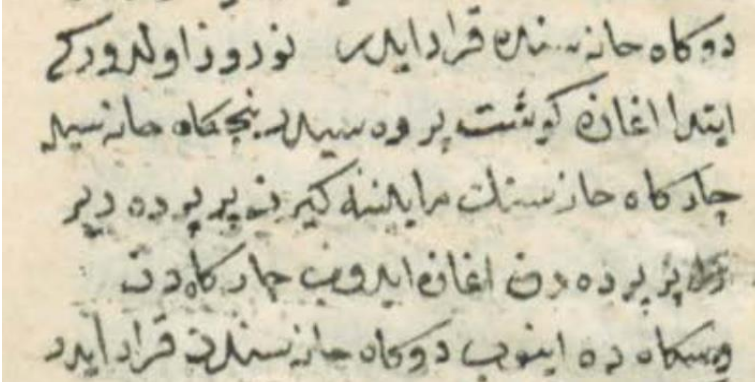 دوكاه خانه سنده قرار ايدر نوروز اولدوركه
ابتدا اغازه كوشت پرده سيله پنجكاه خانه سيله
چاركاه خانه سنك مابيننه كيرن بر پرده دير
بر پرده دن اغازه ايدوب چاركاه دن
وسكاه ده اينوب دوكاه خانه سندن قرار ايدر